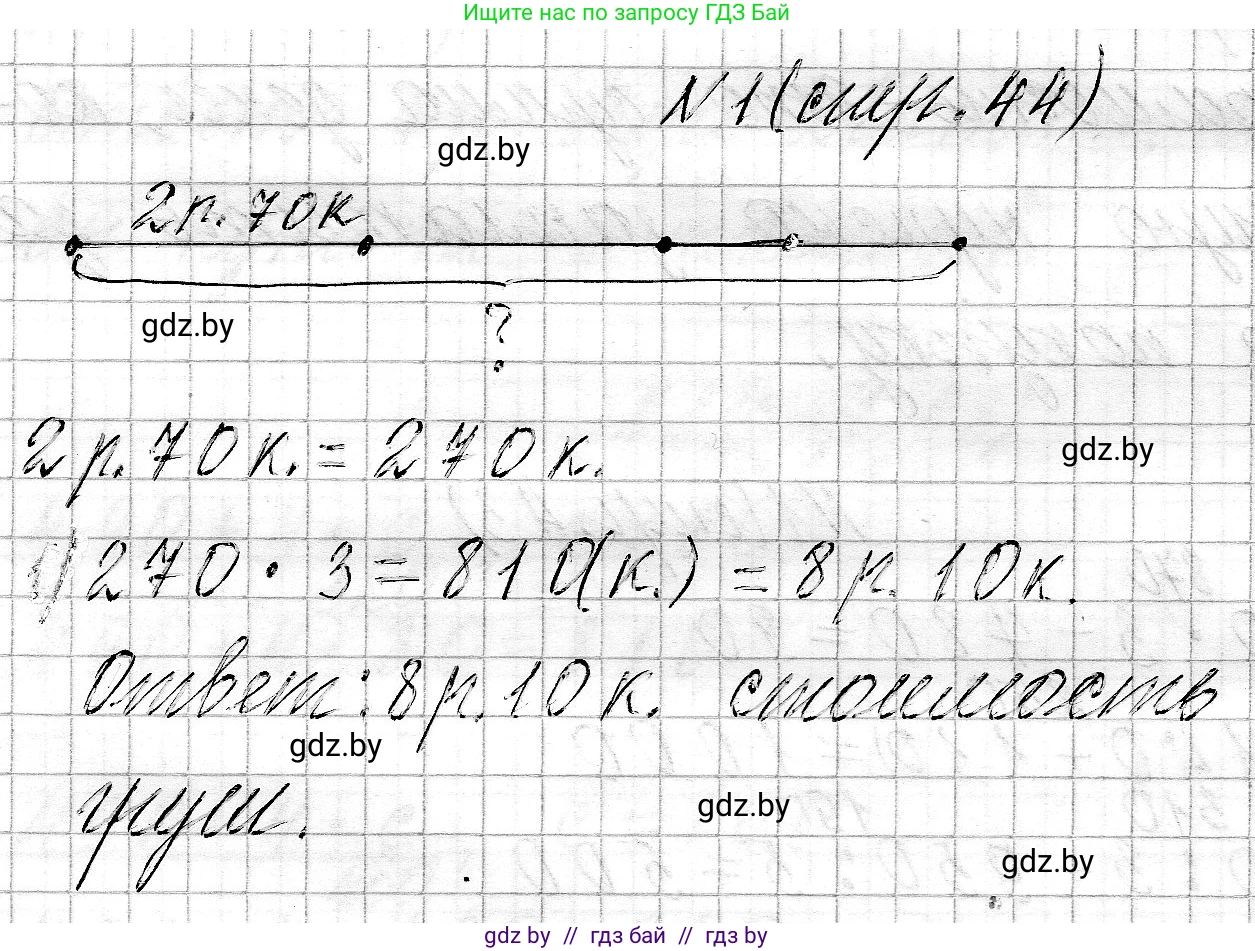 Ищите нас по запросу ГДЗ Бай
N 1 (стр. 44)
gdz.by
2 р. 70 к
gdz.by
?
2 р. 70 к. = 270 к.
gdz.by
1) 270 · 3 = 810 (к.) = 8 р. 10 к.
Ответ: 8 р. 10 к. стоимость
gdz.by
груш.
gdz.by
gdz.by
gdz by // гдз бай // гдз by